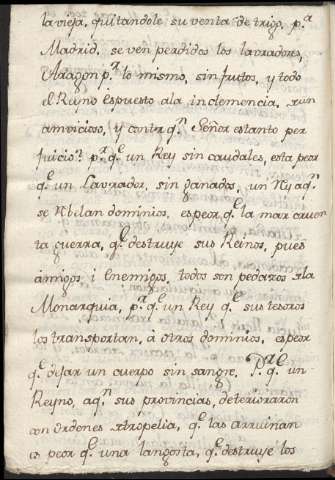 la vieja, quitandole su venta de trigo, p.a
Madrid, se ven perdidos los lavradores,
Aragon p.r lo mismo, sin frutos, y todo
el Reyno espuesto ala inclemencia, xun
amvicioso, y contra q.n Señor estanto per
juicio? p.r q.e un Rey sin caudales, esta peor
q.e un Lavrador, sin ganados, un Ry aq.n
se dominios, es peor q.e la mas cruen
ta guerra, q.e destruye sus Reinos, pues
amigos i Enemigos, todos son pedazos xla
Monarquia, p.r q.e un Rey q.e sus tesoros
los transportan, à otros dominios, es peor
q.e dejar un cuerpo sin sangre. P.r q.e un
Reyno, aq.n sus provincias, deterioraron
con ordenes xtropelia, q.e las arruinan
es peor q.e una langosta, q.e destruye los